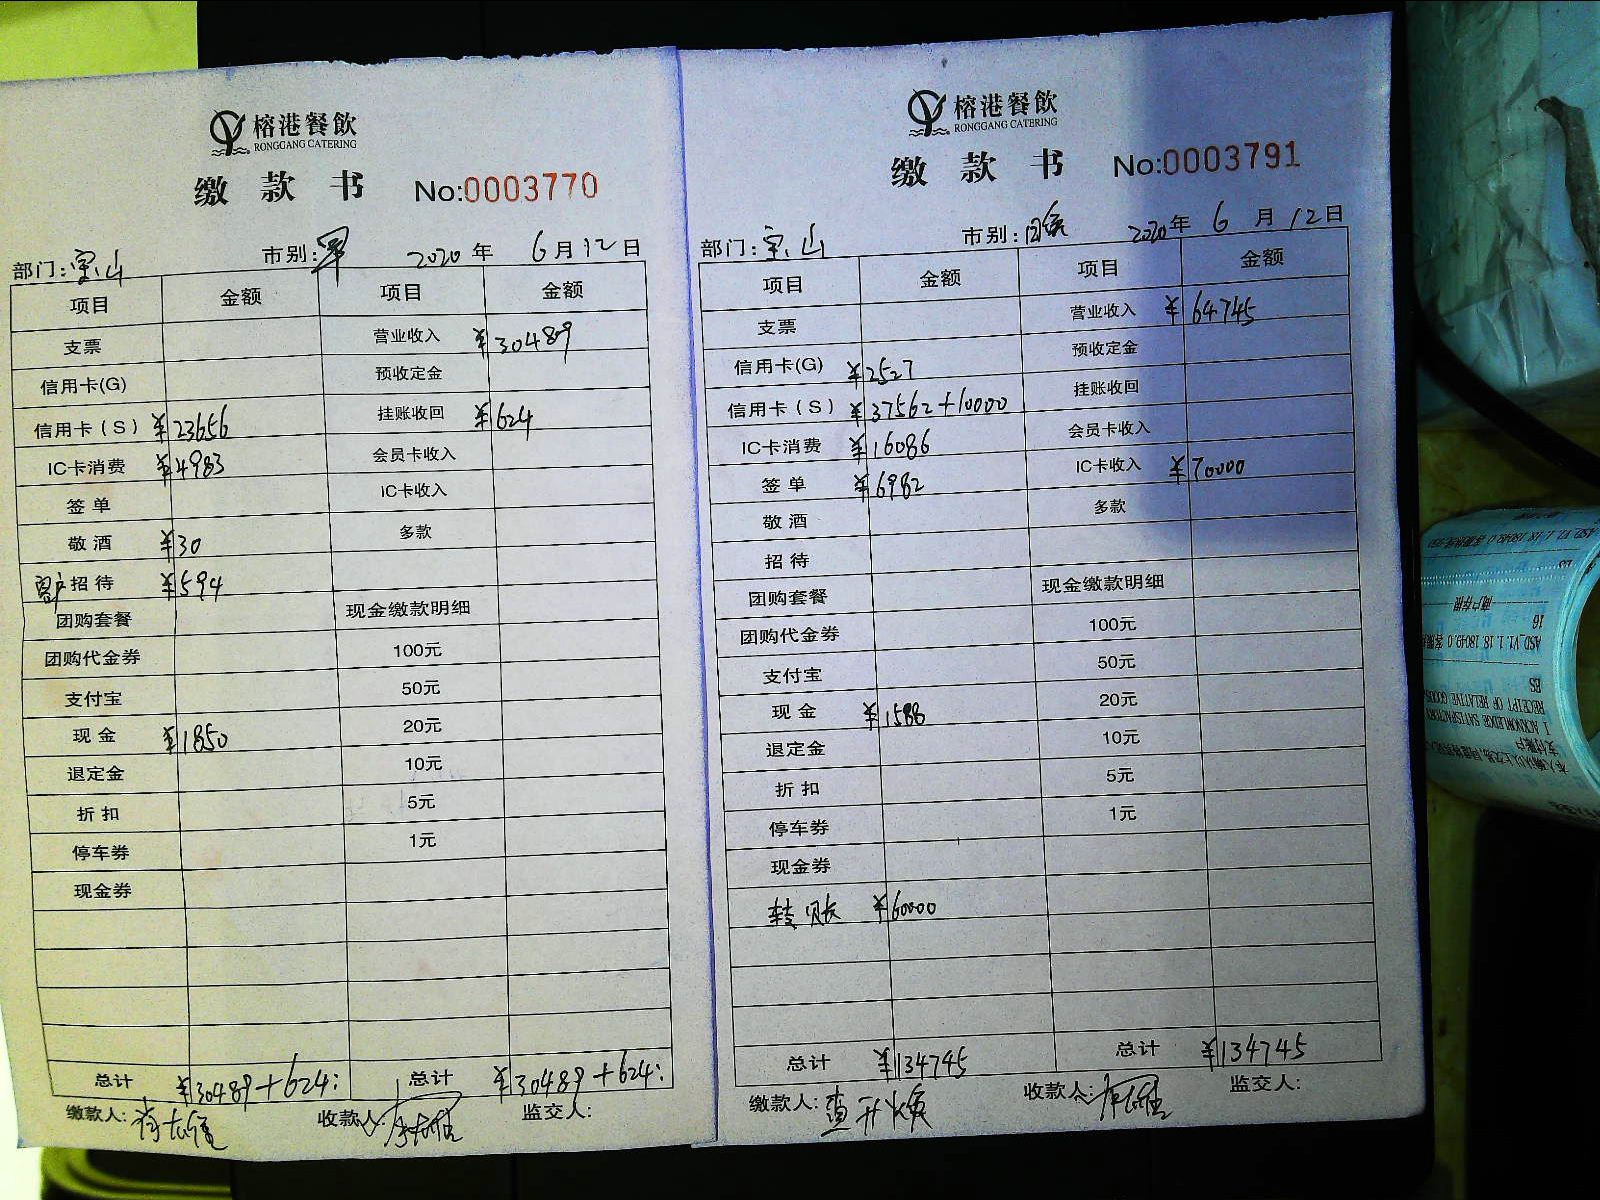 榕港餐飲
RONGGANG CATERING
缴 款 书 No:0003770
部门:宝山 市别: 2020年 6月12日
项目 金额 项目 金额
支票 营业收入 ¥30489
信用卡(G) 预收定金
信用卡(S) ¥23656 挂账收回 ¥624
IC卡消费 ¥4983 会员卡收入
签单 IC卡收入
敬酒 ¥30 多款
客户招待 ¥594
团购套餐 现金缴款明细
团购代金券 100元
支付宝 50元
现金 ¥1850 20元
退定金 10元
折扣 5元
停车券 1元
现金券
总计 ¥30489+624: 总计 ¥30489+624:
缴款人: 收款人: 监交人:
榕港餐飲
RONGGANG CATERING
缴 款 书 No:0003791
部门:宝山 市别: 2020年 6月12日
项目 金额 项目 金额
支票 营业收入 ¥64745
信用卡(G) ¥2527 预收定金
信用卡(S) ¥37562+10000 挂账收回
IC卡消费 ¥16086 会员卡收入
签单 ¥6982 IC卡收入 ¥70000
敬酒 多款
招待
团购套餐 现金缴款明细
团购代金券 100元
支付宝 50元
现金 ¥1588 20元
退定金 10元
折扣 5元
停车券 1元
现金券
转账 ¥60000
总计 ¥134745 总计 ¥134745
缴款人: 收款人: 监交人:
商户存根
RECEIPT OF RELATIVE GOODS
I ACKNOWLEDGE SATISFACTORY